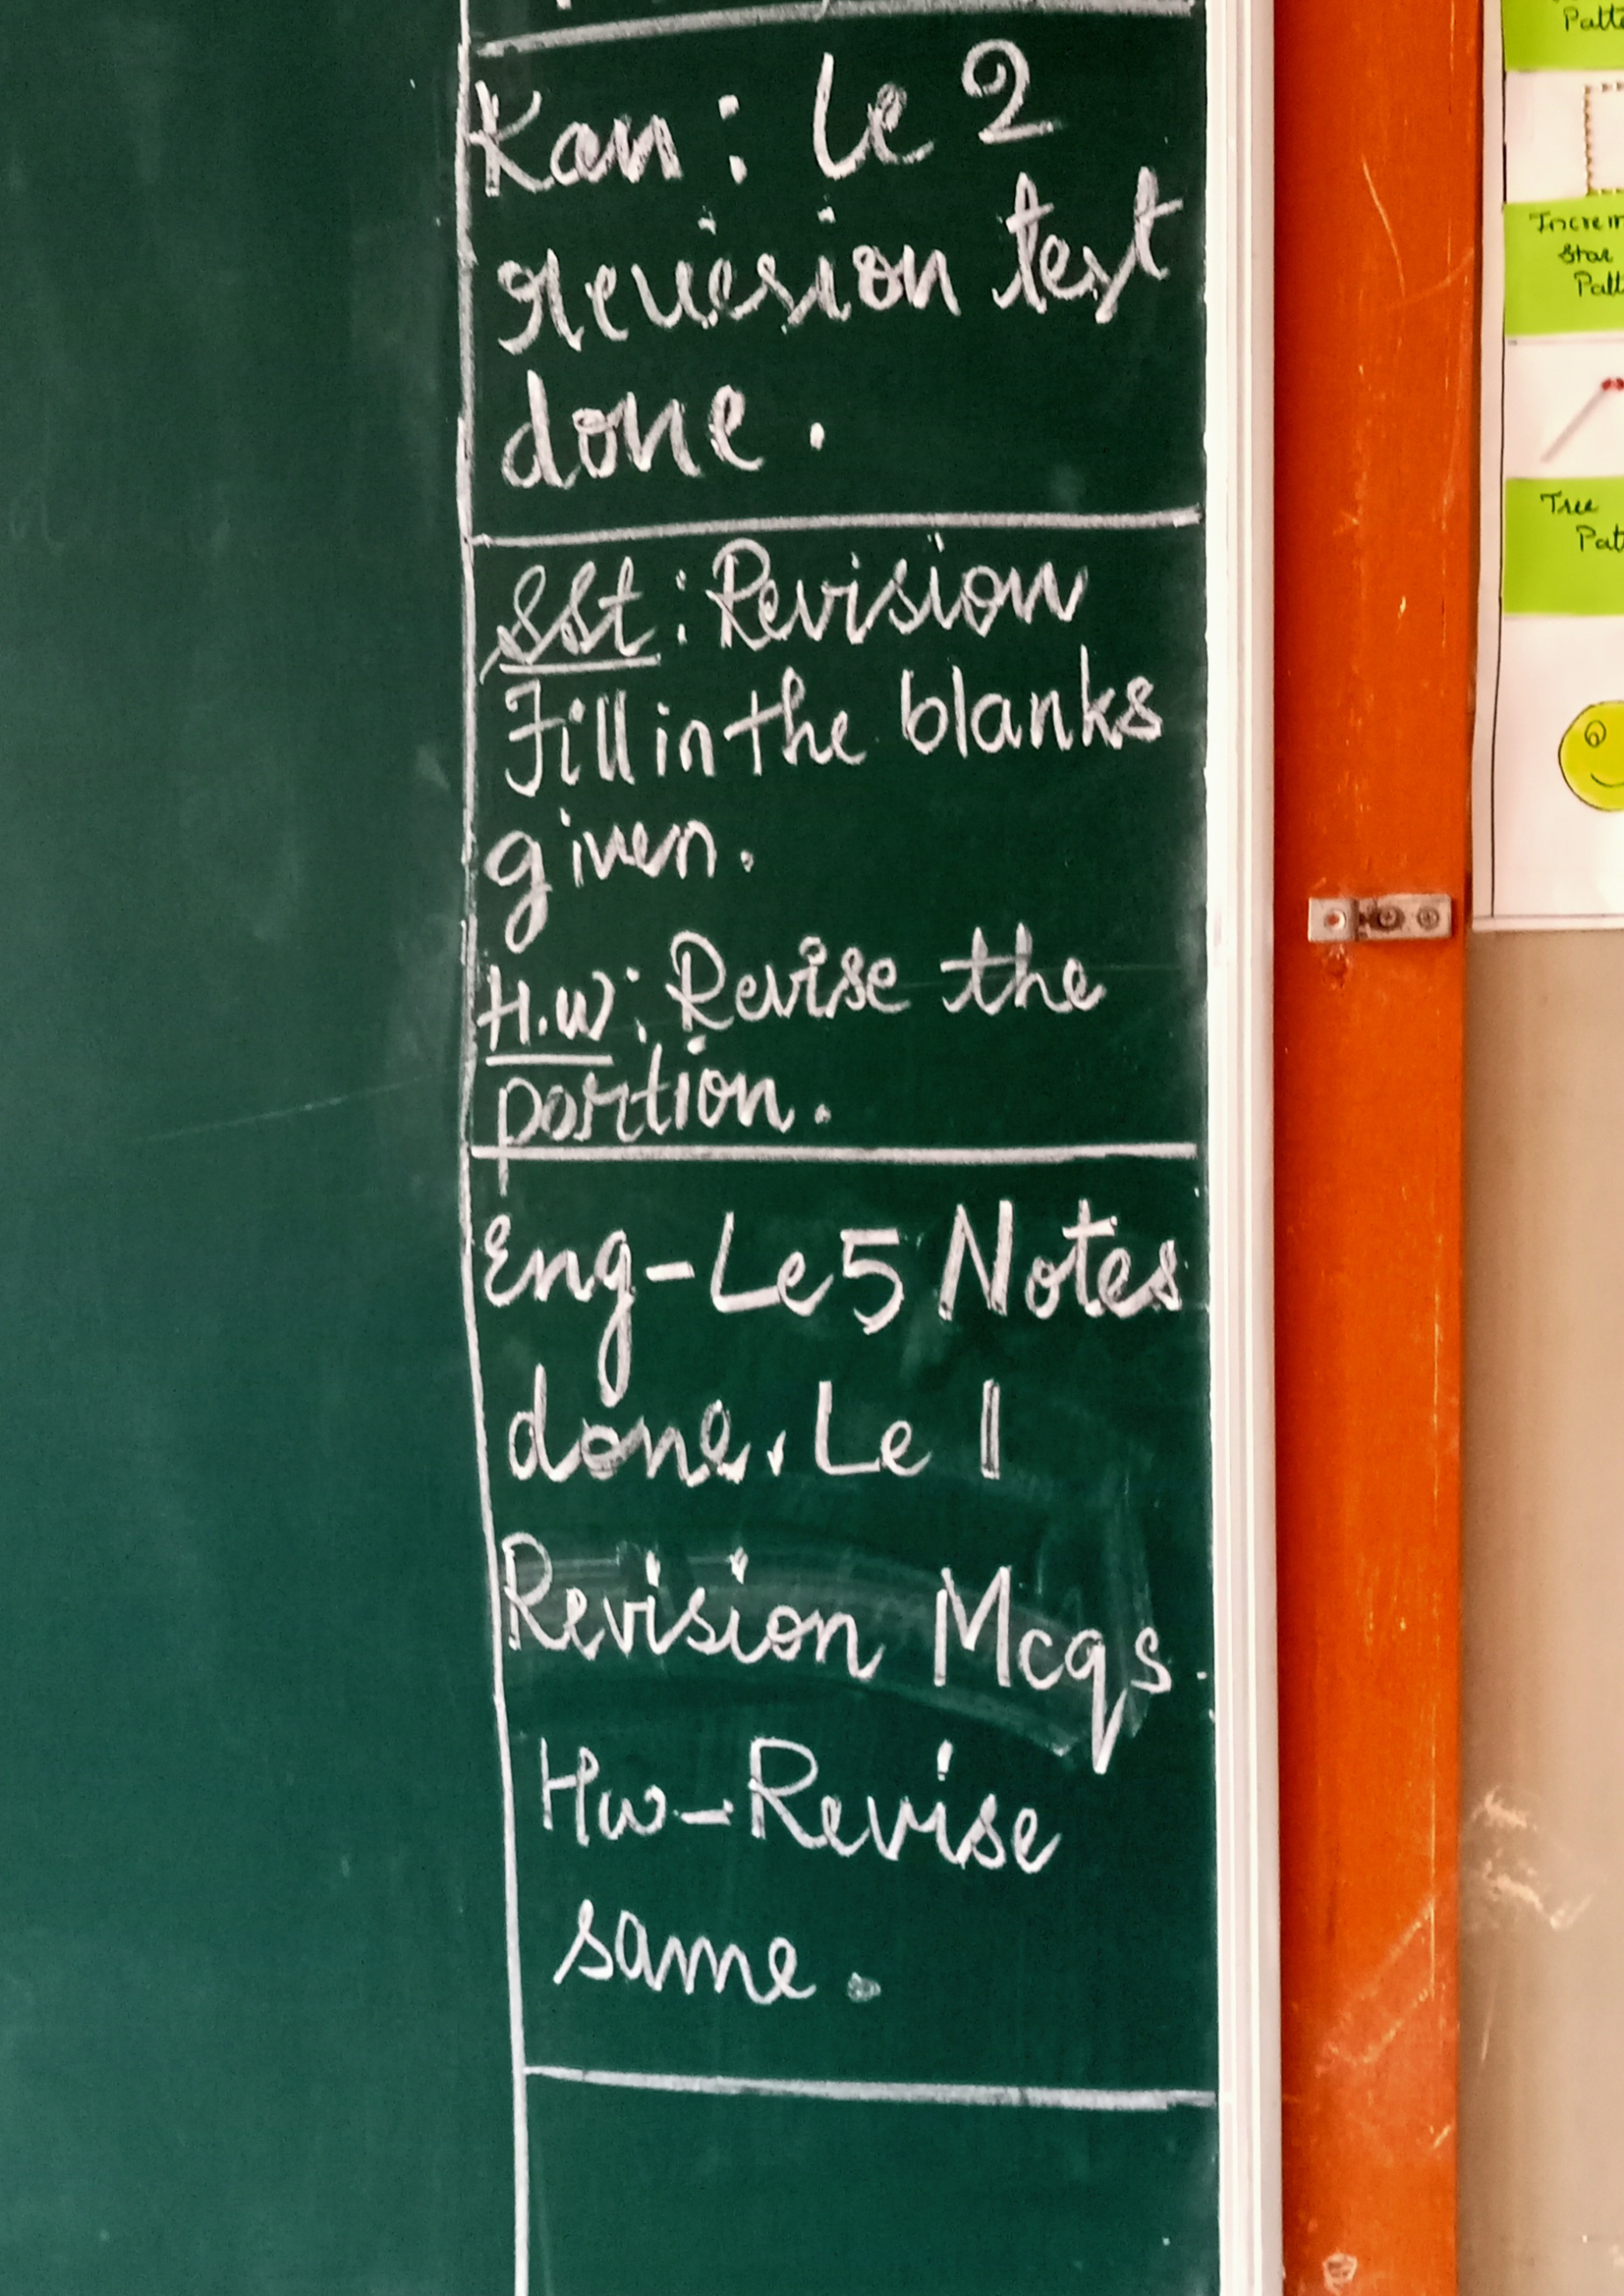 Kan : Le 2
revision test
done .
SSt : Revision
Fill in the blanks
given .
H.W : Revise the
portion .
Eng - Le 5 Notes
done. Le 1
Revision Mcqs .
Hw - Revise
same .
Star
Tree